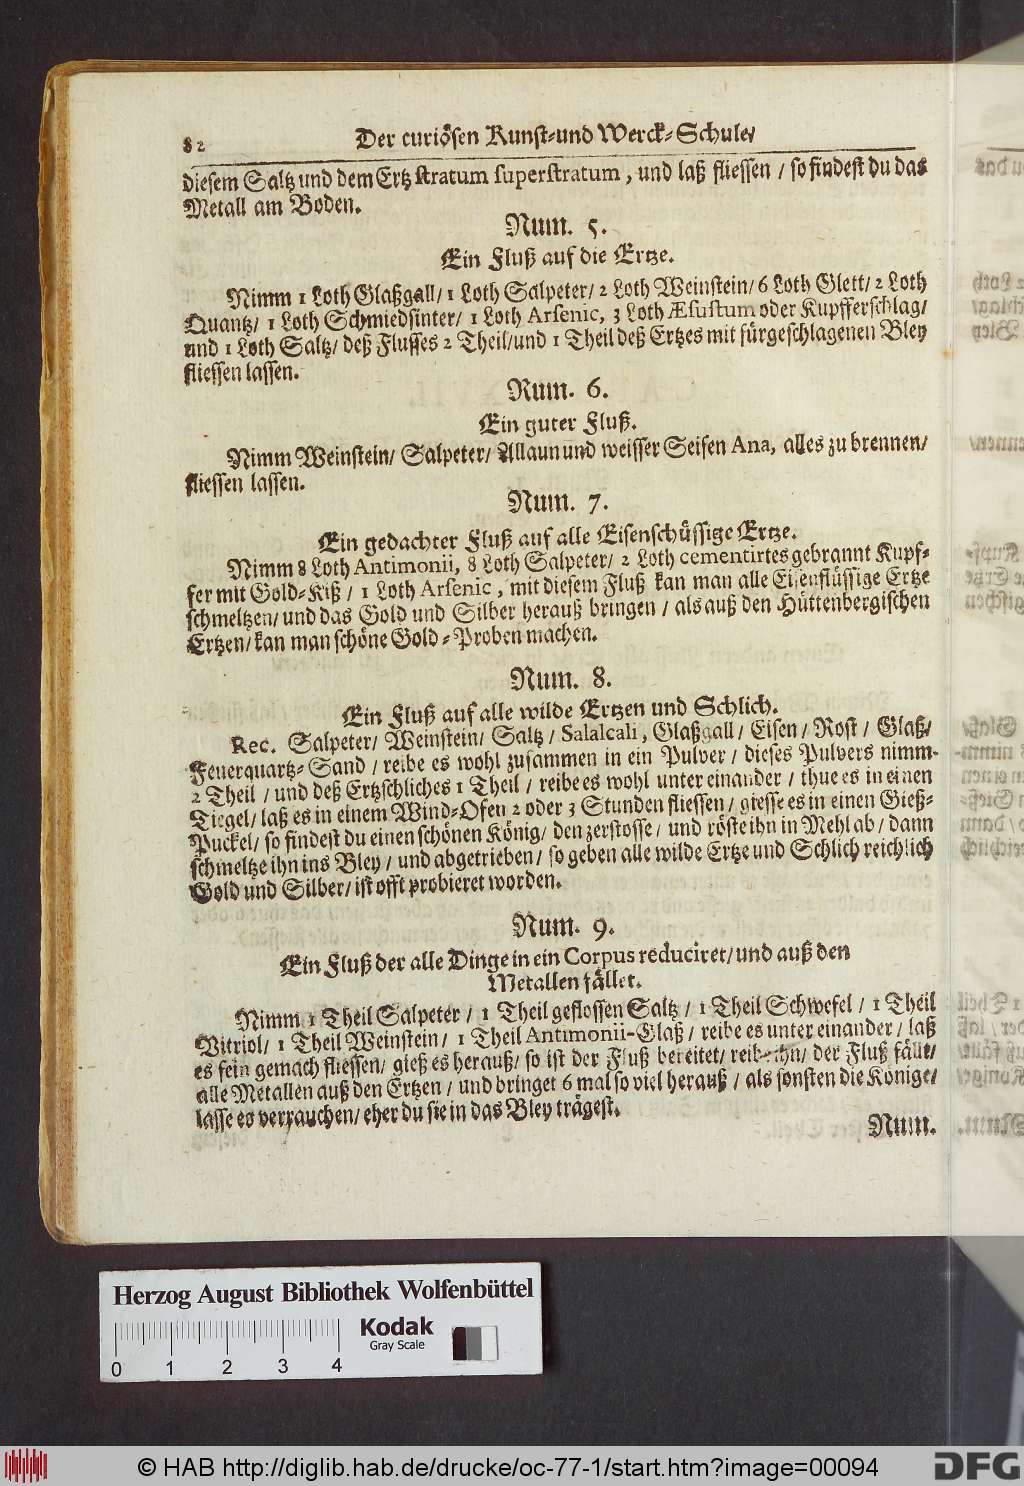 82 Der curiösen Kunst-und Werck-Schule/
diesem Saltz und dem Ertz stratum superstratum, und laß fliessen / so findest du das
Metall am Boden.
Num. 5.
Ein Fluß auf die Ertze.
Nimm 1 Loth Glaßgall/ 1 Loth Salpeter/ 2 Loth Weinstein/ 6 Loth Glett/ 2 Loth
Quantz/ 1 Loth Schmiedsinter/ 1 Loth Arsenic, 3 Loth Æsustum oder Kupfferschlag/
und 1 Loth Saltz/ deß Flusses 2 Theil/und 1 Theil deß Ertzes mit fürgeschlagenen Bley
fliessen lassen.
Num. 6.
Ein guter Fluß.
Nimm Weinstein/ Salpeter/ Allaun und weisser Seifen Ana, alles zu brennen/
fliessen lassen.
Num. 7.
Ein gedachter Fluß auf alle Eisenschüssige Ertze.
Nimm 8 Loth Antimonii, 8 Loth Salpeter/ 2 Loth cementirtes gebrannt Kupf-
fer mit Gold-Kiß / 1 Loth Arsenic, mit diesem Fluß kan man alle Eisenflüssige Ertze
schmeltzen/ und das Gold und Silber herauß bringen / als auß den Hüttenbergischen
Ertzen/ kan man schöne Gold-Proben machen.
Num. 8.
Ein Fluß auf alle wilde Ertzen und Schlich.
Rec. Salpeter/ Weinstein/ Saltz / Salalcali, Glaßgall/ Eisen / Rost / Glaß/
Feuerquartz-Sand / reibe es wohl zusammen in ein Pulver / dieses Pulvers nimm
2 Theil / und deß Ertzschliches 1 Theil / reibe es wohl unter einander / thue es in einen
Tiegel/ laß es in einem Wind-Ofen 2 oder 3 Stunden fliessen / giesse es in einen Gieß-
Puckel/ so findest du einen schönen König/ den zerstosse/ und röste ihn in Mehl ab / dann
schmeltze ihn ins Bley / und abgetrieben / so geben alle wilde Ertze und Schlich reichlich
Gold und Silber/ ist offt probieret worden.
Num. 9.
Ein Fluß der alle Dinge in ein Corpus reduciret/ und auß den
Metallen fället.
Nimm 1 Theil Salpeter / 1 Theil geflossen Saltz / 1 Theil Schwefel / 1 Theil
Vitriol/ 1 Theil Weinstein / 1 Theil Antimonii-Glaß / reibe es unter einander / laß
es fein gemach fliessen/ gieß es herauß/ so ist der Fluß bereitet/ reibe ihn/ der Fluß fällt/
alle Metallen auß den Ertzen / und bringet 6 mal so viel herauß / als sonsten die Könige/
lasse es verrauchen/ eher du sie in das Bley trägest.
Num.
Herzog August Bibliothek Wolfenbüttel
Kodak
Gray Scale
0 1 2 3 4
© HAB http://diglib.hab.de/drucke/oc-77-1/start.htm?image=00094
DFG